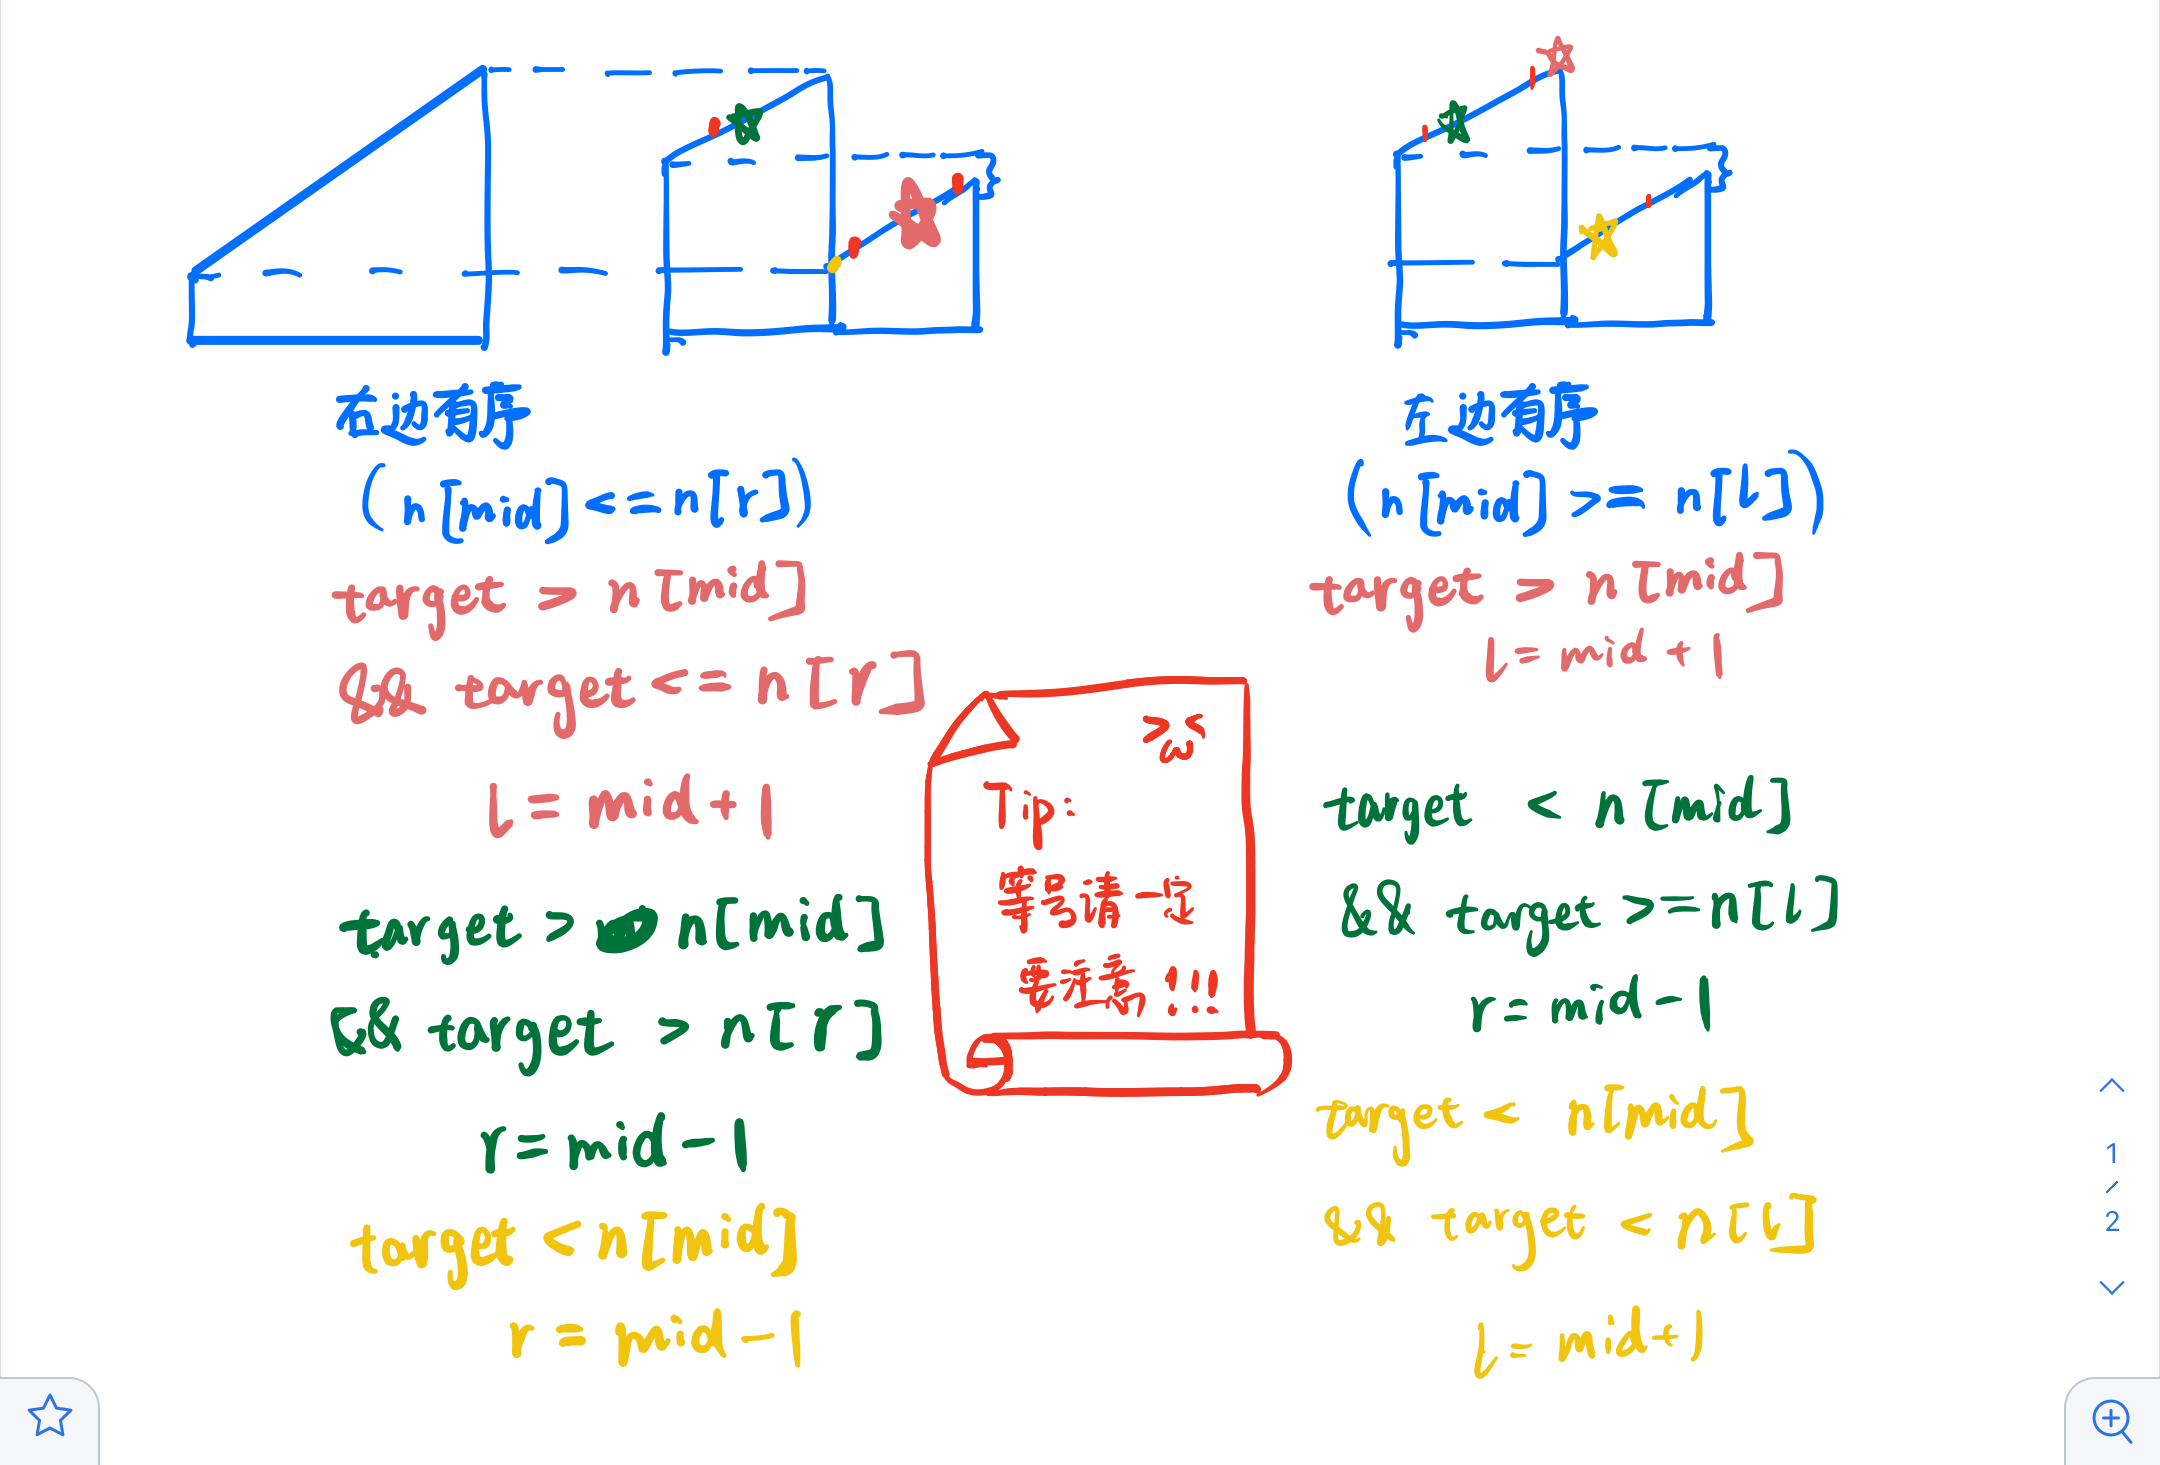 右边有序
(n[mid] <= n[r])
target > n[mid]
&& target <= n[r]
l = mid + 1
target > n[mid]
&& target > n[r]
r = mid - 1
target < n[mid]
r = mid - 1
>ω<
Tip:
等号请一定
要注意!!!
左边有序
(n[mid] >= n[l])
target > n[mid]
l = mid + 1
target < n[mid]
&& target >= n[l]
r = mid - 1
target < n[mid]
&& target < n[l]
l = mid + 1
1
/
2